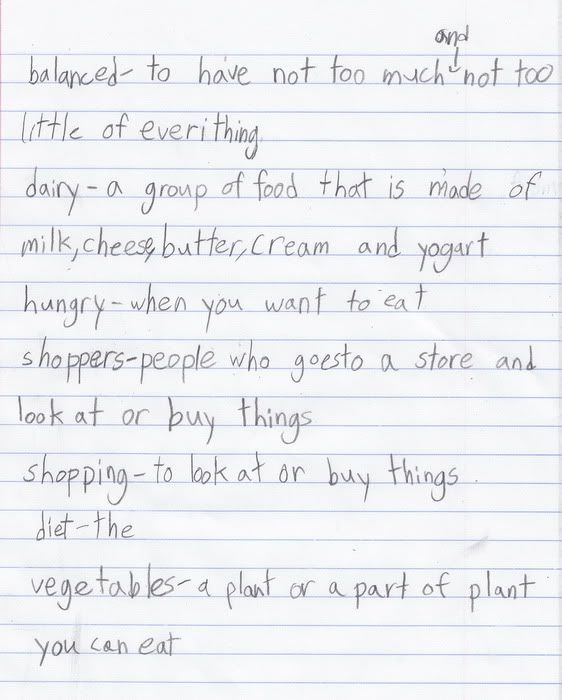 and
balanced- to have not too much not too
little of everithing
dairy-a group of food that is made of
milk,cheese,butter,cream and yogart
hungry-when you want to eat
shoppers-people who goesto a store and
look at or buy things
shopping-to look at or buy things.
diet-the
vegetables-a plant or a part of plant
you can eat